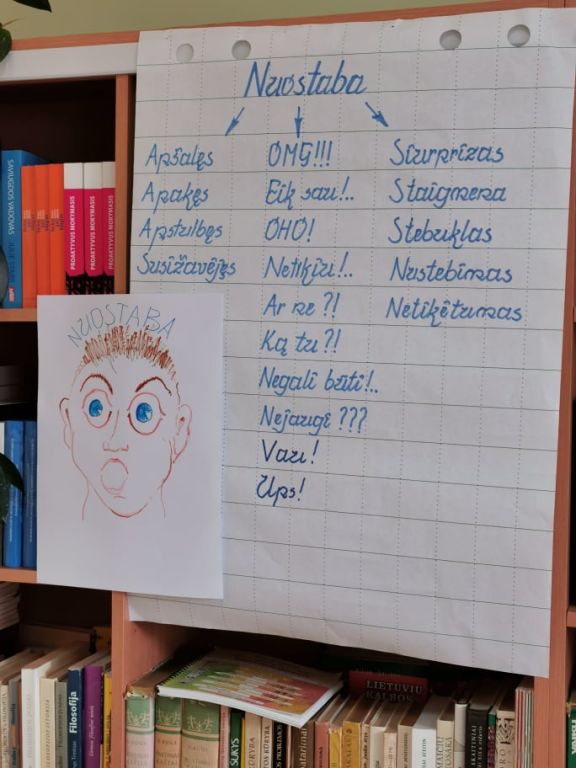 Nuostaba
Apšalęs
Apakęs
Apstulbęs
Susižavėjęs
OMG!!!
Eik sau!..
OHO!
Netikiu!..
Ar ne?!
Ką tu?!
Negali būti!..
Nejaugi???
Vau!
Ups!
Siurprizas
Staigmena
Stebuklas
Nustebimas
Netikėtumas
NUOSTABA
PROAKTYVUS MOKYMASIS
PROAKTYVUS MOKYMASIS
PROAKTYVUS MOKYMASIS
Filosofija
LIETUVIŲ
KALBOS